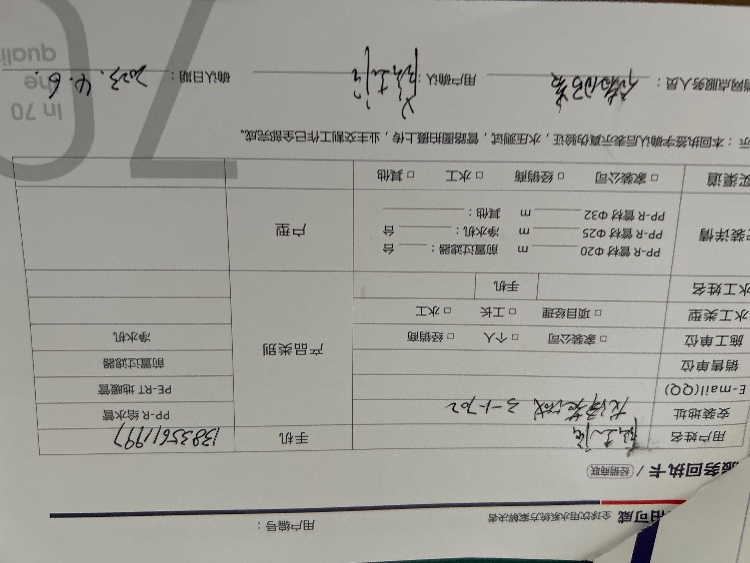 用户编号：
全球饮用水系统方案解决者
服务回执卡 / 经销商联
用户姓名 手机 13835611997
安装地址 3-1-702 PP-R 给水管
E-mail(QQ) PE-RT 地暖管
销售单位 产品类别 前置过滤器
施工单位 □ 家装公司 □ 个人 □ 经销商 净水机
水工类型 □ 项目经理 □ 工长 □ 水工
水工姓名 手机
装详情 PP-R 管材 Φ20 m 前置过滤器： 台 户型
PP-R 管材 Φ25 m 净水机： 台
PP-R 管材 Φ32 m 其他：
买渠道 □ 家装公司 □ 经销商 □ 水工 □ 其他
示：本回执签字确认后表示真伪验证，水压测试，管路图拍摄上传，业主交割工作已全部完成。
网点服务人员： 用户确认： 确认日期： 2023.4.6.
70
In 70
the
quali